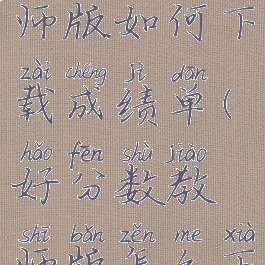 师版如何下
zài chéng jì dān
载成绩单(
hǎo fēn shù jiào
好分数教
shī bǎn zěn me xià
师版怎么下